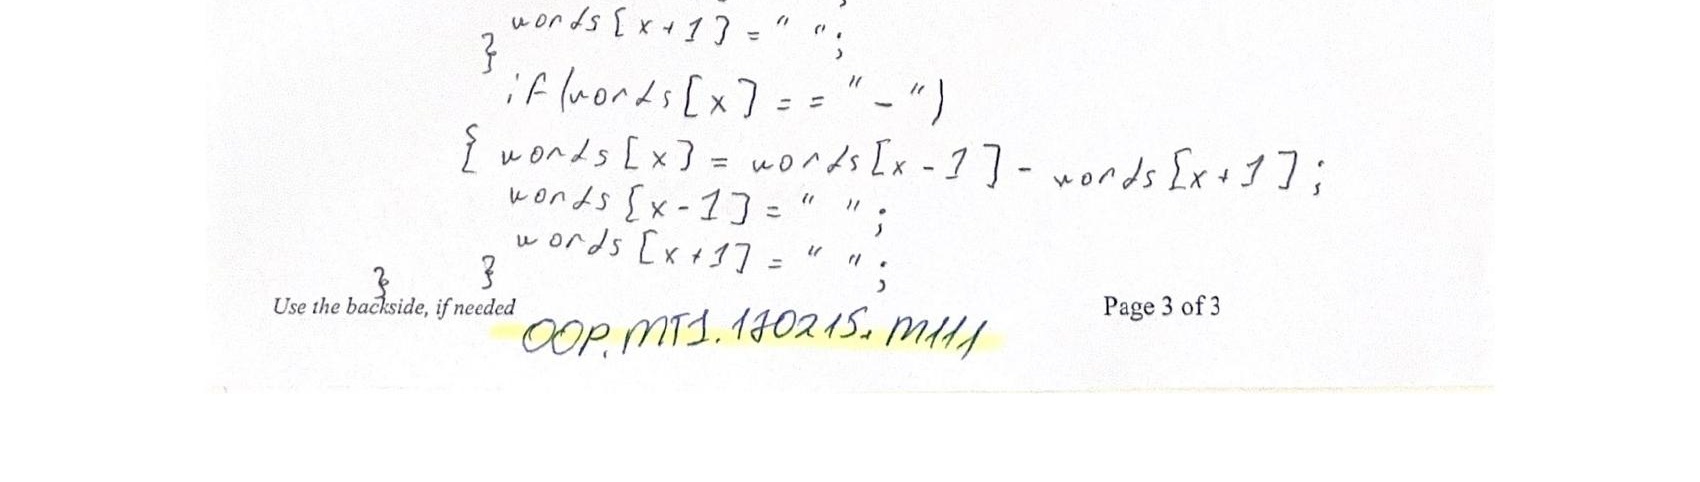 words[x+1] = " ";
}
if(words[x] == "-")
{ words[x] = words[x-1] - words[x+1];
words[x-1] = " ";
words[x+1] = " ";
} }
Use the backside, if needed
Page 3 of 3
OOP.MT1.170215.M111